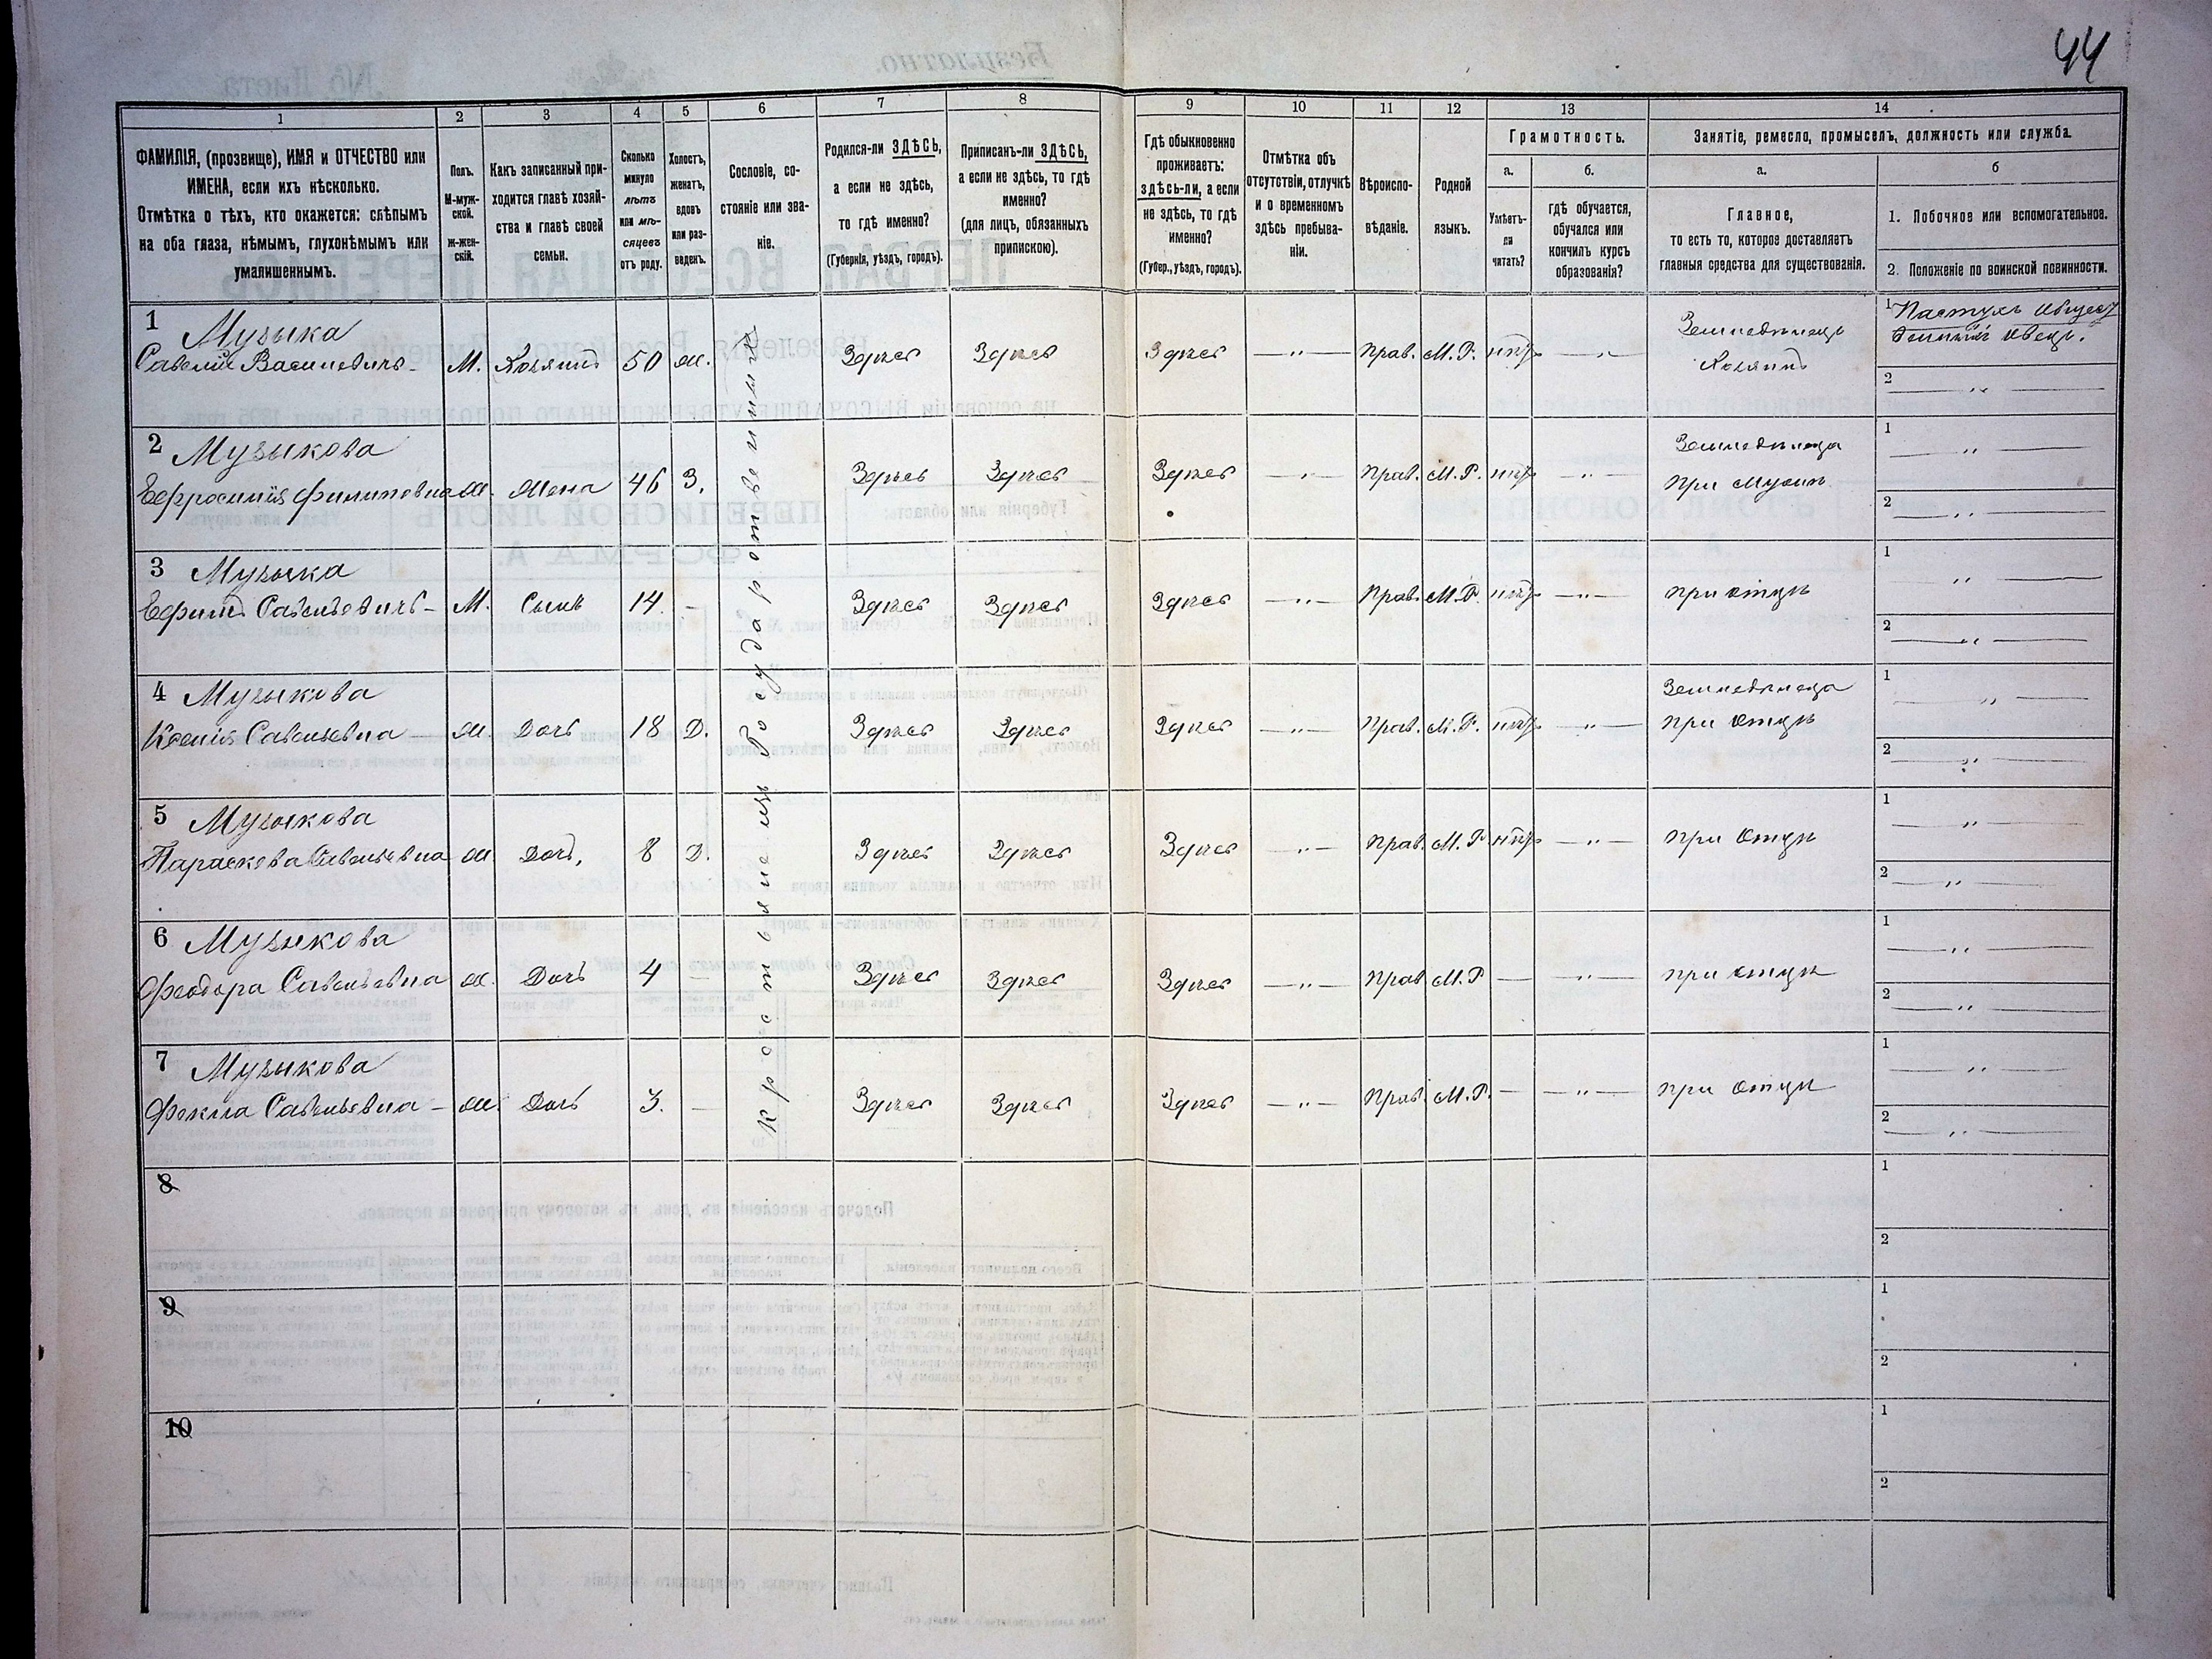 44
1 2 3 4 5 6 7 8 9 10 11 12 13 14
ФАМИЛІЯ, (прозвище), ИМЯ и ОТЧЕСТВО или
ИМЕНА, если ихъ нѣсколько.
Отмѣтка о тѣхъ, кто окажется: слѣпымъ
на оба глаза, нѣмымъ, глухонѣмымъ или
умалишеннымъ.
Полъ.
М-муж-
ской.
Ж-жен-
скій.
Какъ записанный при-
ходится главѣ хозяй-
ства и главѣ своей
семьи.
Сколько
минуло
лѣтъ
или мѣ-
сяцевъ
отъ роду.
Холостъ,
женатъ,
вдовъ
или раз-
веденъ.
Сословіе, со-
стояніе или зва-
ніе.
Родился-ли ЗДѢСЬ,
а если не здѣсь,
то гдѣ именно?
(Губернія, уѣздъ, городъ).
Приписанъ-ли ЗДѢСЬ,
а если не здѣсь, то гдѣ
именно?
(для лицъ, обязанныхъ
припискою).
Гдѣ обыкновенно
проживаетъ:
здѣсь-ли, а если
не здѣсь, то гдѣ
именно?
(Губер., уѣздъ, городъ).
Отмѣтка объ
отсутствіи, отлучкѣ
и о временномъ
здѣсь пребыва-
ніи.
Вѣроиспо-
вѣданіе.
Родной
языкъ.
Грамотность.
а.
Умѣетъ-
ли
читать?
б.
гдѣ обучается,
обучался или
кончилъ курсъ
образованія?
Занятіе, ремесло, промыселъ, должность или служба.
а.
Главное,
то есть то, которое доставляетъ
главныя средства для существованія.
б
1. Побочное или вспомогательное.
2. Положеніе по воинской повинности.
Крестьяне изъ Государственныхъ
1 Музыка
Савелій Васильевичъ М. Хозяинъ 50 ж. Здѣсь Здѣсь Здѣсь —„— Прав. М.Р. нѣтъ —„— Земледѣлецъ
Хозяинъ
1 Пастухъ общест
венный овецъ.
2 —„—
2 Музыкова
Ефросинія Филиповна ж. Жена 46 З. Здѣсь Здѣсь Здѣсь —„— Прав. М.Р. нѣтъ —„— Земледѣлица
При Мужѣ
1 —„—
2 —„—
3 Музыка
Ефимъ Савельевичъ М. Сынъ 14. — Здѣсь Здѣсь Здѣсь —„— Прав. М.Р. нѣтъ —„— при отцѣ
1 —„—
2 —„—
4 Музыкова
Ксенія Савельевна ж. Дочь 18 Д. Здѣсь Здѣсь Здѣсь —„— Прав. М.Р. нѣтъ —„— Земледѣлица
при Отцѣ
1 —„—
2 —„—
5 Музыкова
Параскева Савельевна ж. Дочь, 8 Д. Здѣсь Здѣсь Здѣсь —„— Прав. М.Р. нѣтъ —„— при Отцѣ
1 —„—
2 —„—
6 Музыкова
Феодора Савельевна ж. Дочь 4 — Здѣсь Здѣсь Здѣсь —„— Прав М.Р — —„— при отцѣ
1 —„—
2 —„—
7 Музыкова
Фекла Савельевна ж. Дочь 3. — Здѣсь Здѣсь Здѣсь —„— Прав. М.Р. — —„— при Отцѣ
1 —„—
2 —„—
8
1
2
9
1
2
10
1
2